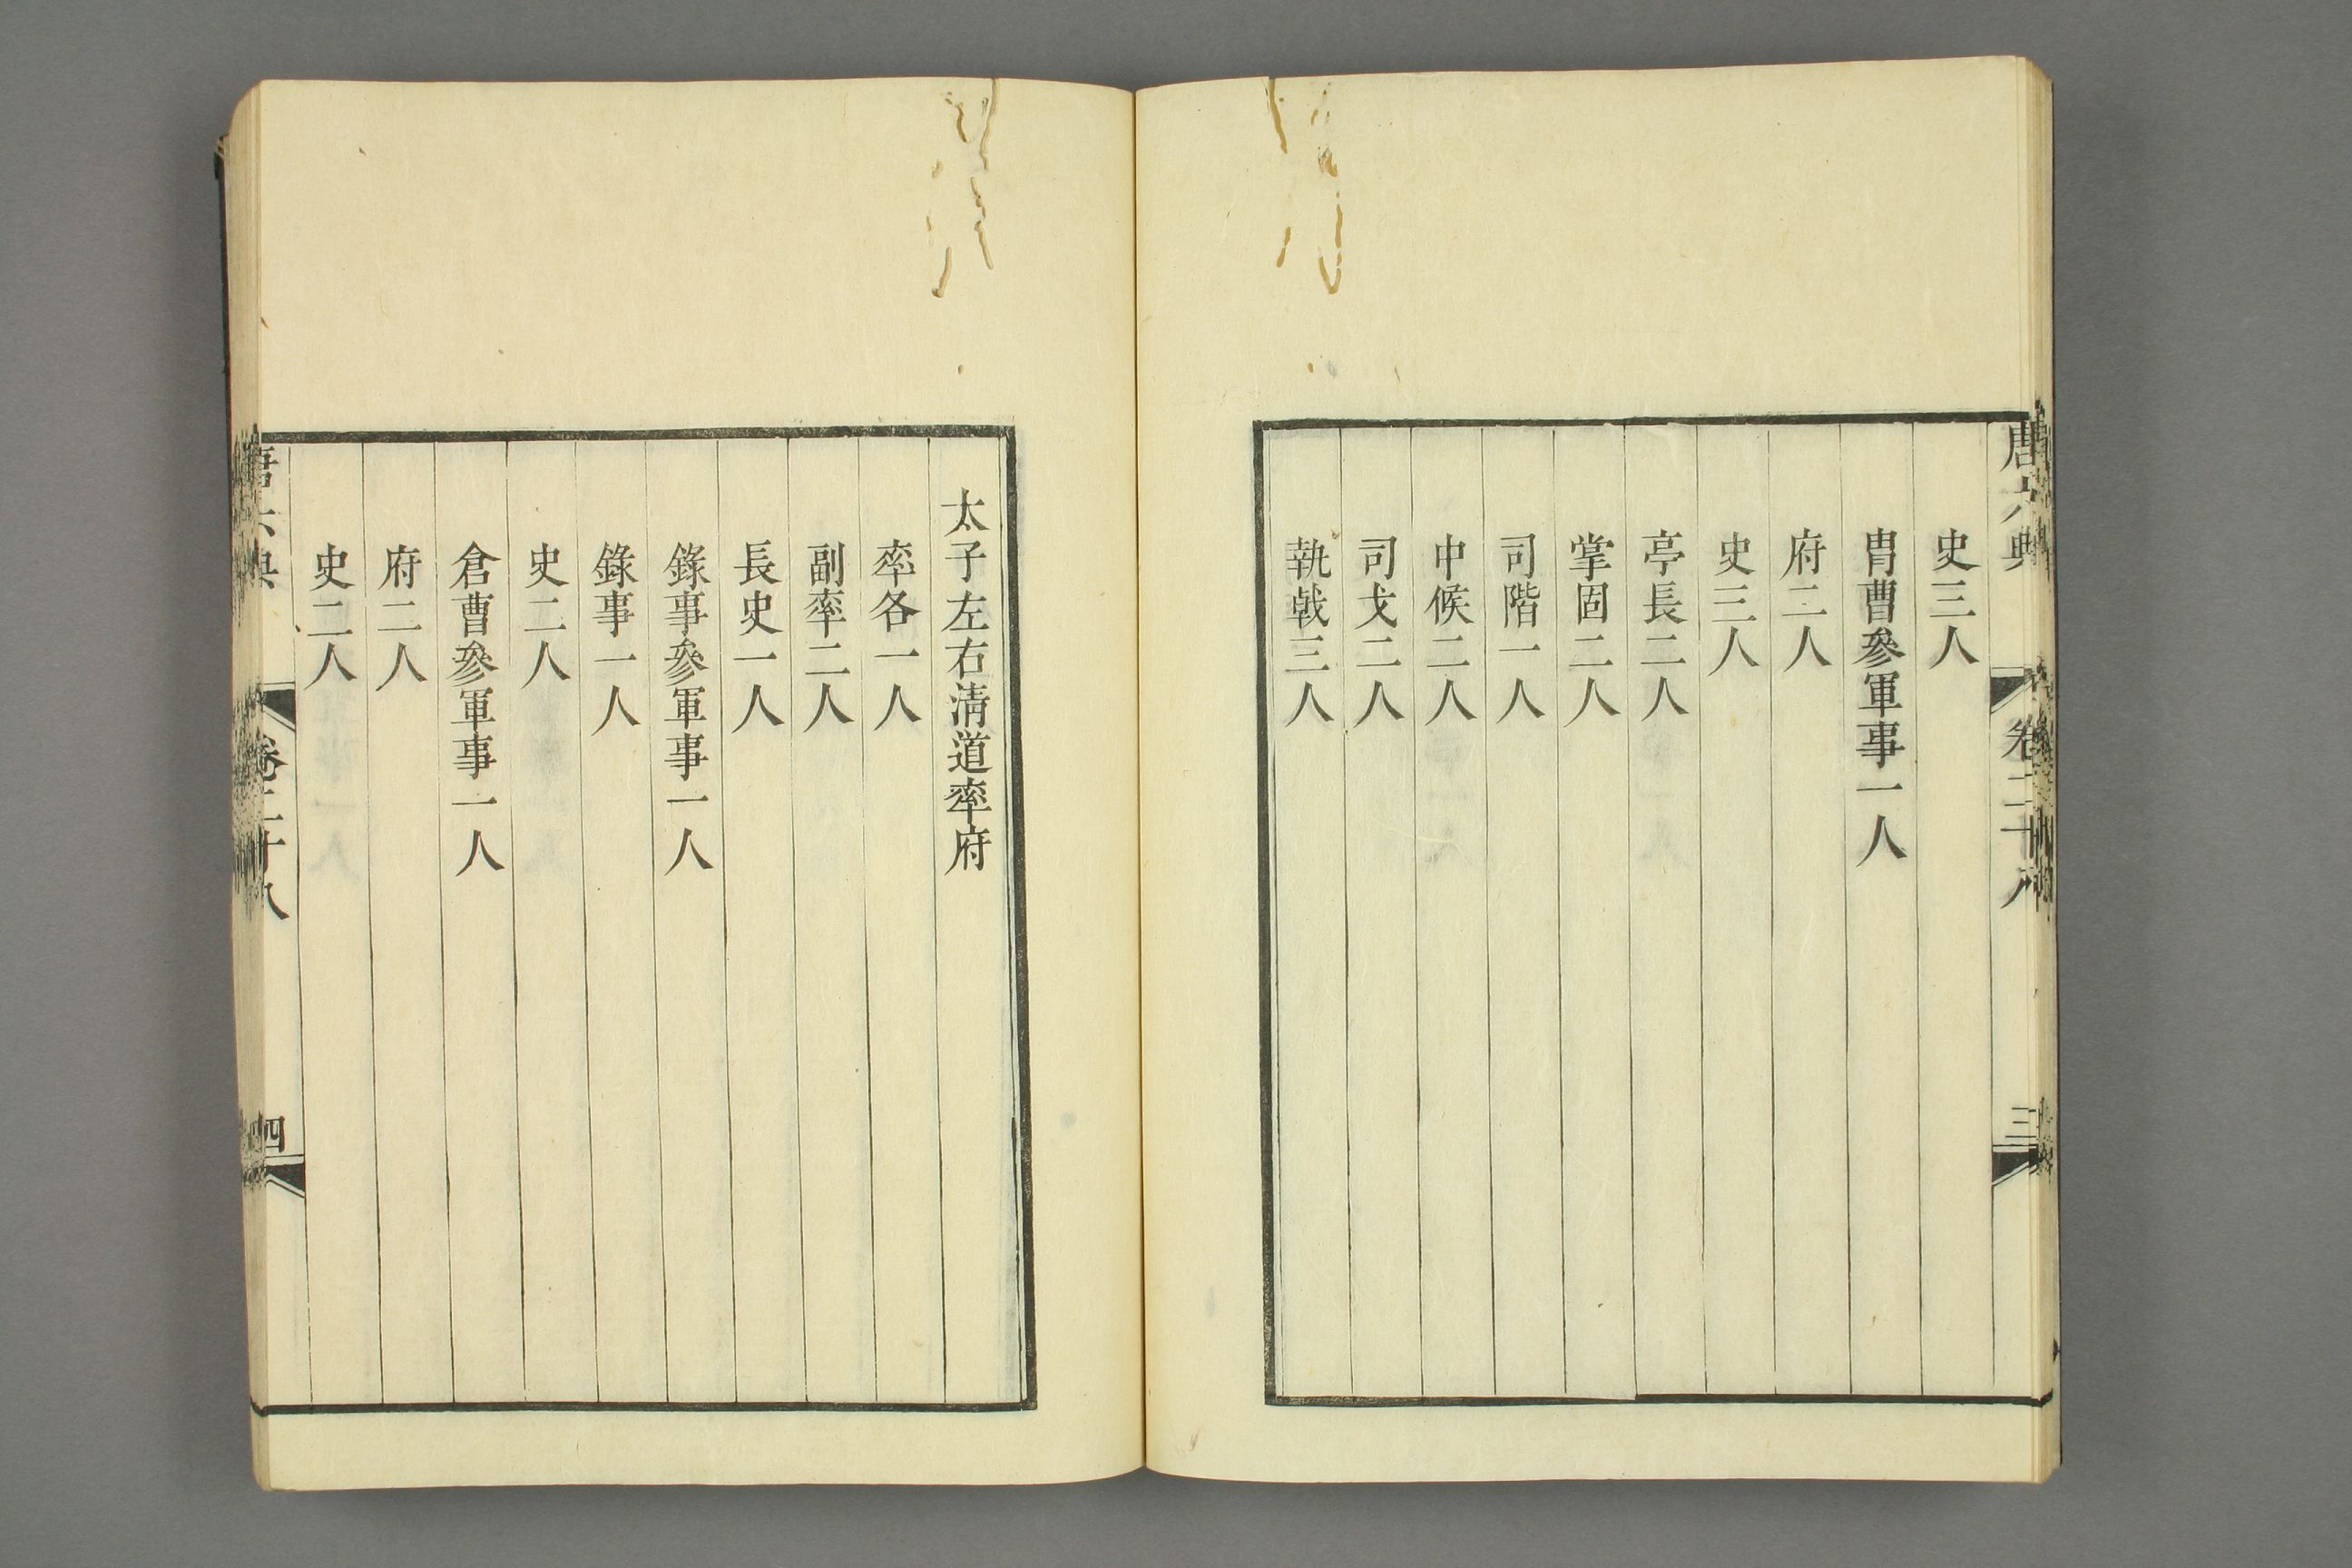 唐六典 卷二十八 三
史三人
冑曹參軍事一人
府二人
史三人
亭長二人
掌固二人
司階一人
中候二人
司戈二人
執戟三人
太子左右清道率府
率各一人
副率二人
長史一人
錄事參軍事一人
錄事一人
史二人
倉曹參軍事一人
府二人
史二人
唐六典 卷二十八 四